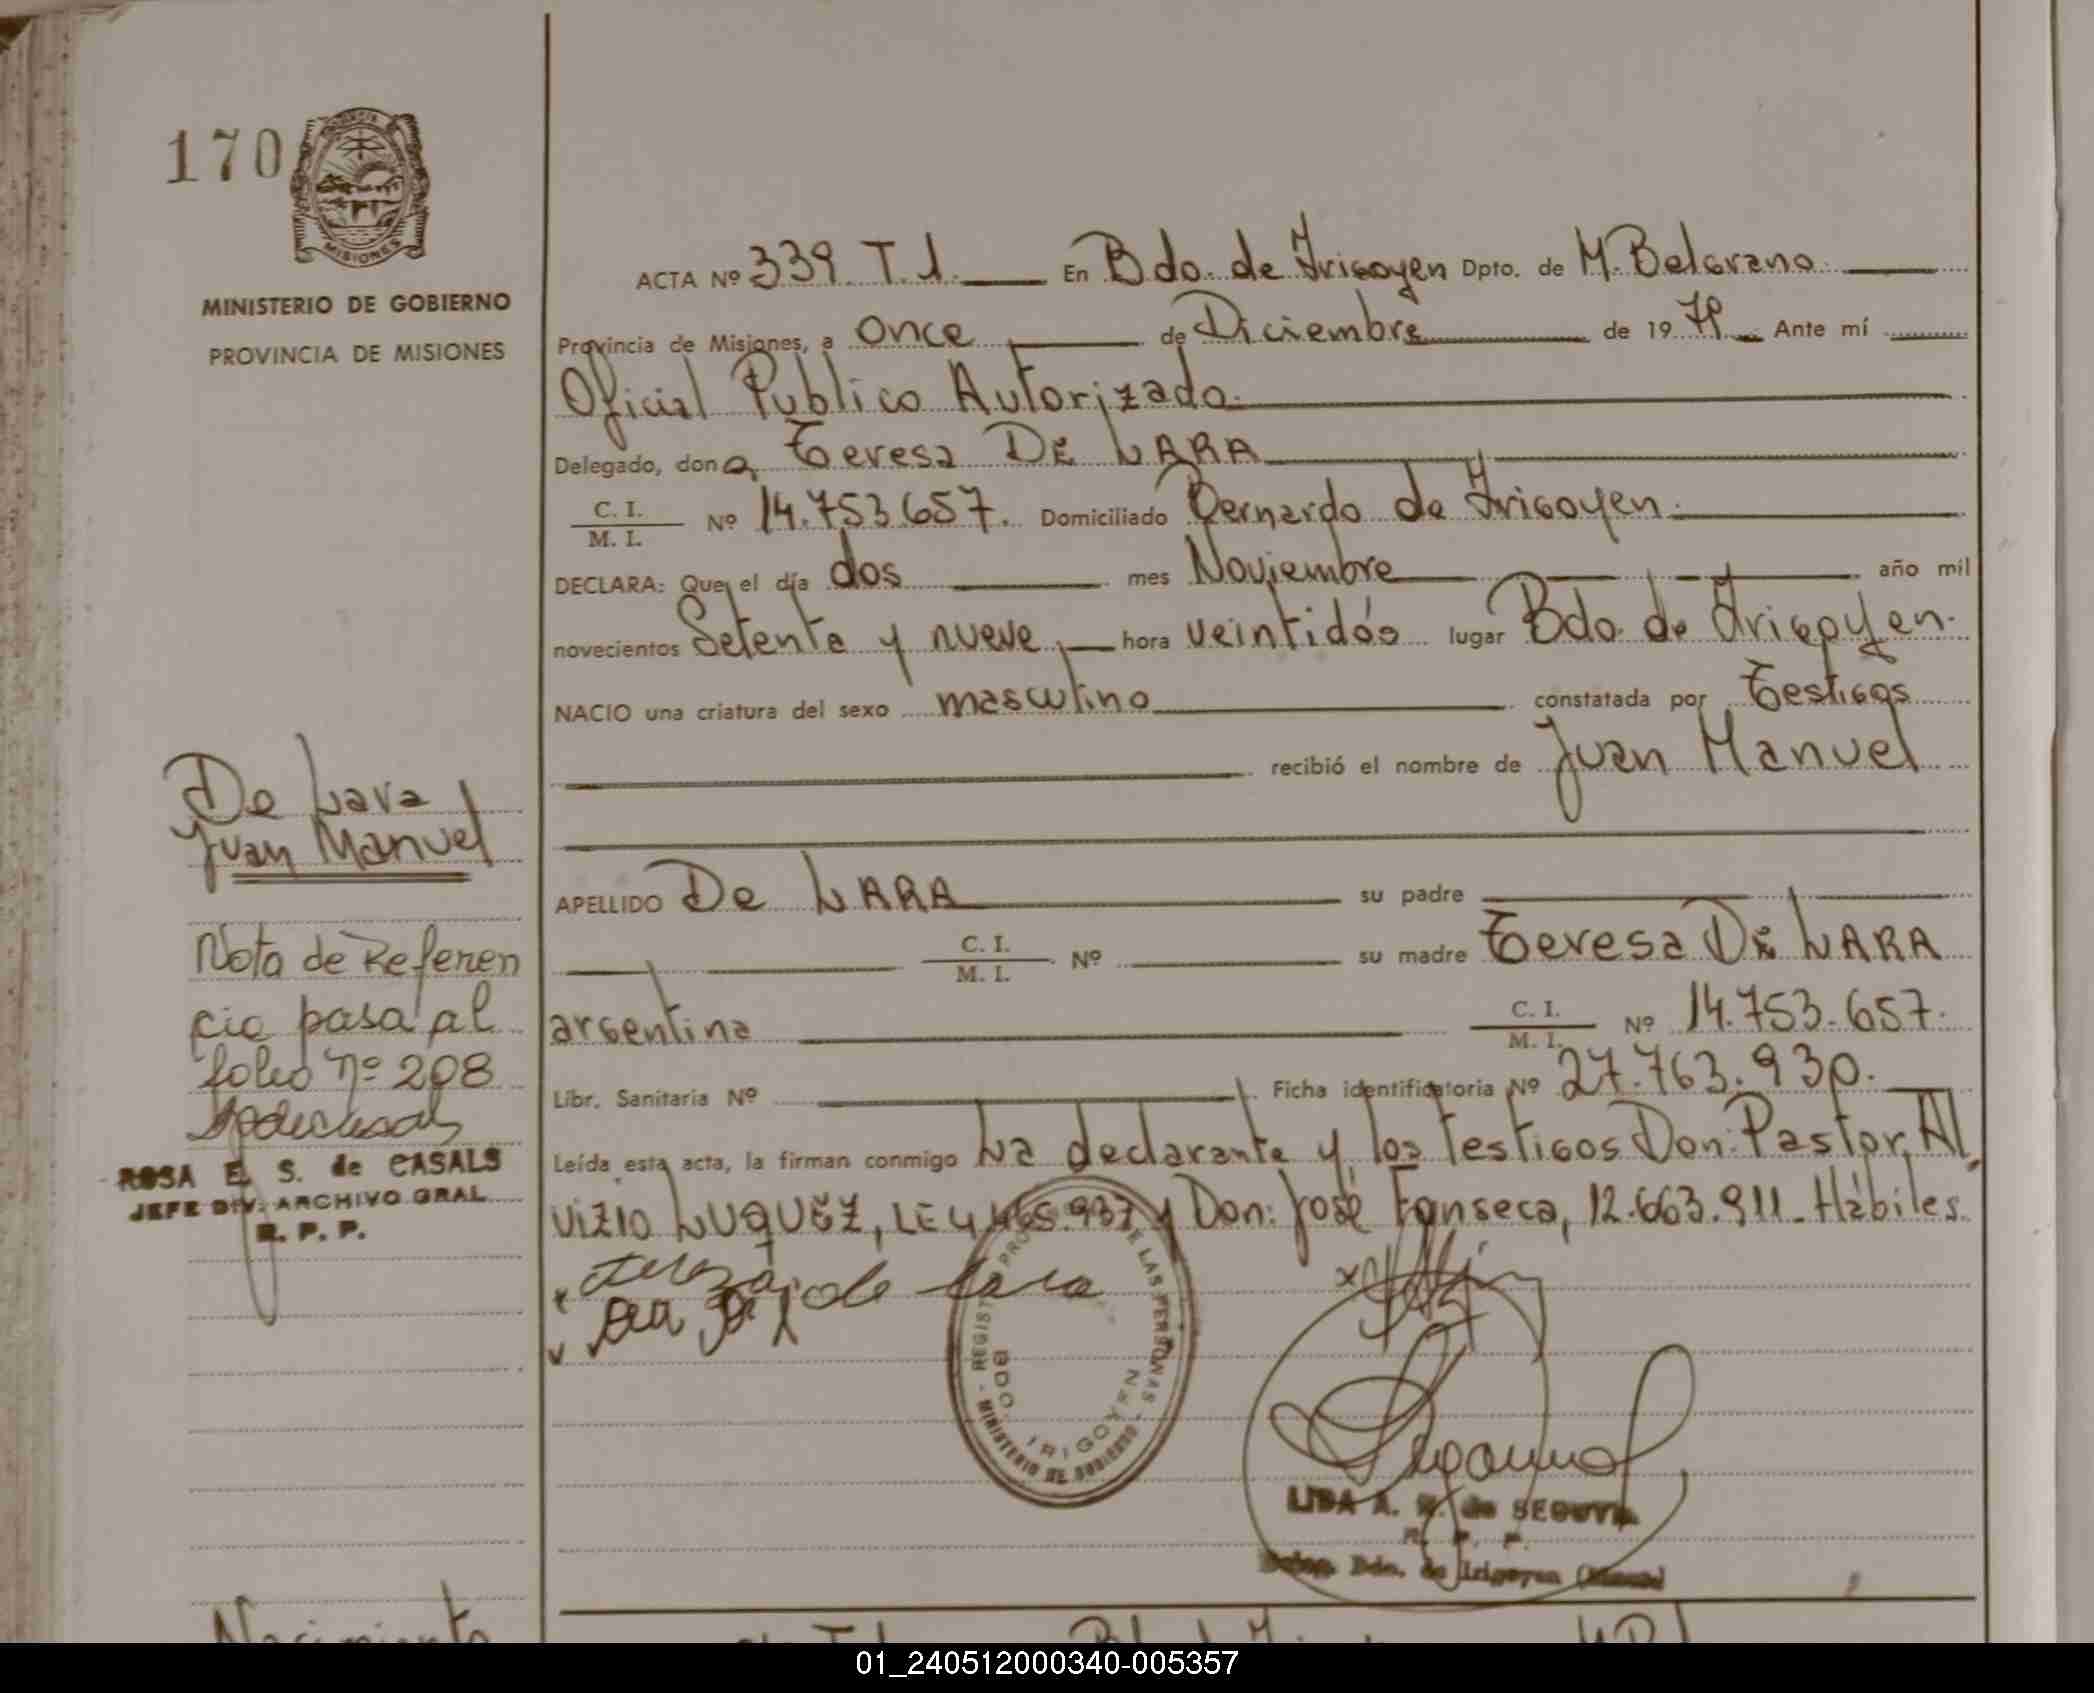 170
MISIONES
MINISTERIO DE GOBIERNO
PROVINCIA DE MISIONES
ACTA Nº 339 T.1. En Bdo. de Irigoyen Dpto. de M. Belgrano
Provincia de Misiones, a once de Diciembre de 1979 Ante mí
Oficial Publico Autorizado.
Delegado, don a, Teresa DE LARA
C. I. / M. I. Nº 14.753.657. Domiciliado Bernardo de Irigoyen.
DECLARA: Que el día dos mes Noviembre año mil
novecientos Setenta y nueve, hora veintidós lugar Bdo. de Irigoyen.
NACIO una criatura del sexo masculino constatada por Testigos
recibió el nombre de Juan Manuel
De Lara
Juan Manuel
APELLIDO De LARA su padre
C. I. / M. I. Nº su madre Teresa DE LARA
argentina C. I. / M. I. Nº 14.753.657.
Libr. Sanitaria Nº Ficha identificatoria Nº 27.763.930.
Leída esta acta, la firman conmigo La declarante y los testigos Don: Pastor Al
vizio LUQUEZ, LE 4.465.937 y Don: José Fonseca, 12.663.911. Hábiles.
Nota de Referen
cia pasa al
folio nº 208
ROSA E. S. de CASALS
JEFE DIV. ARCHIVO GRAL
R. P. P.
tereza de lara
MINISTERIO DE GOBIERNO - REGISTRO PRO DE LAS PERSONAS -
BDO. IRIGOYEN
LIDA A. R. de SEGOVIA
R. P. P.
Deleg. Bdo. de Irigoyen
Nacimiento
01_240512000340-005357